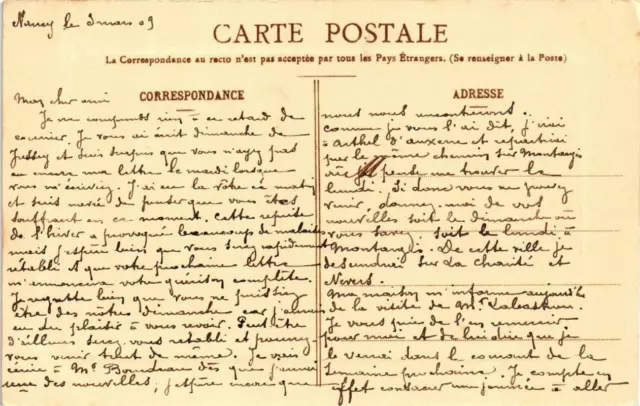 Nancy le 3 mars 09
CARTE POSTALE
La Correspondance au recto n'est pas acceptée par tous les Pays Étrangers. (Se renseigner à la Poste)
CORRESPONDANCE
Mon cher ami
Je ne comprends rien à ce retard de
courrier. Je vous ai écrit dimanche de
Jussey et suis surpris que vous n'ayez pas
eu encore ma lettre le mardi lorsque
vous m'écriviez. J'ai eu la vôtre ce matin
et suis navré de penser que vous êtes
souffrant en ce moment. Cette reprise
de l'hiver a provoqué beaucoup de malaises
mais j'espère bien que vous serez rapidement
rétabli et que votre prochaine lettre
m'annoncera votre guérison complète.
Je regrette bien que vous ne puissiez
être des nôtres dimanche car j'aurais
eu du plaisir à vous revoir. Peut être
d'ailleurs serez vous rétabli et pourrez-
vous venir tout de même. Je vais
écrire à Mr Bourdeau dès que j'aurai
des nouvelles, j'espère encore que
ADRESSE
nous nous rencontrerons.
Comme je vous l'ai dit, j'irai
à d'auxerre et repartirai
par le même chemin sur Montargis
me trouver le
lundi. Si donc vous ne pouvez
venir, donnez-moi de vos
nouvelles soit le dimanche où
vous savez, soit le lundi à
Montargis. De cette ville je
descendrai sur La Charité et
Nevers.
Ma maison m'informe aujourd'hui
de la visite de Mr
Je vous prie de l'en remercier
pour moi et de lui dire que je
le verrai dans le courant de la
semaine prochaine. Je compte en
effet consacrer une journée à aller